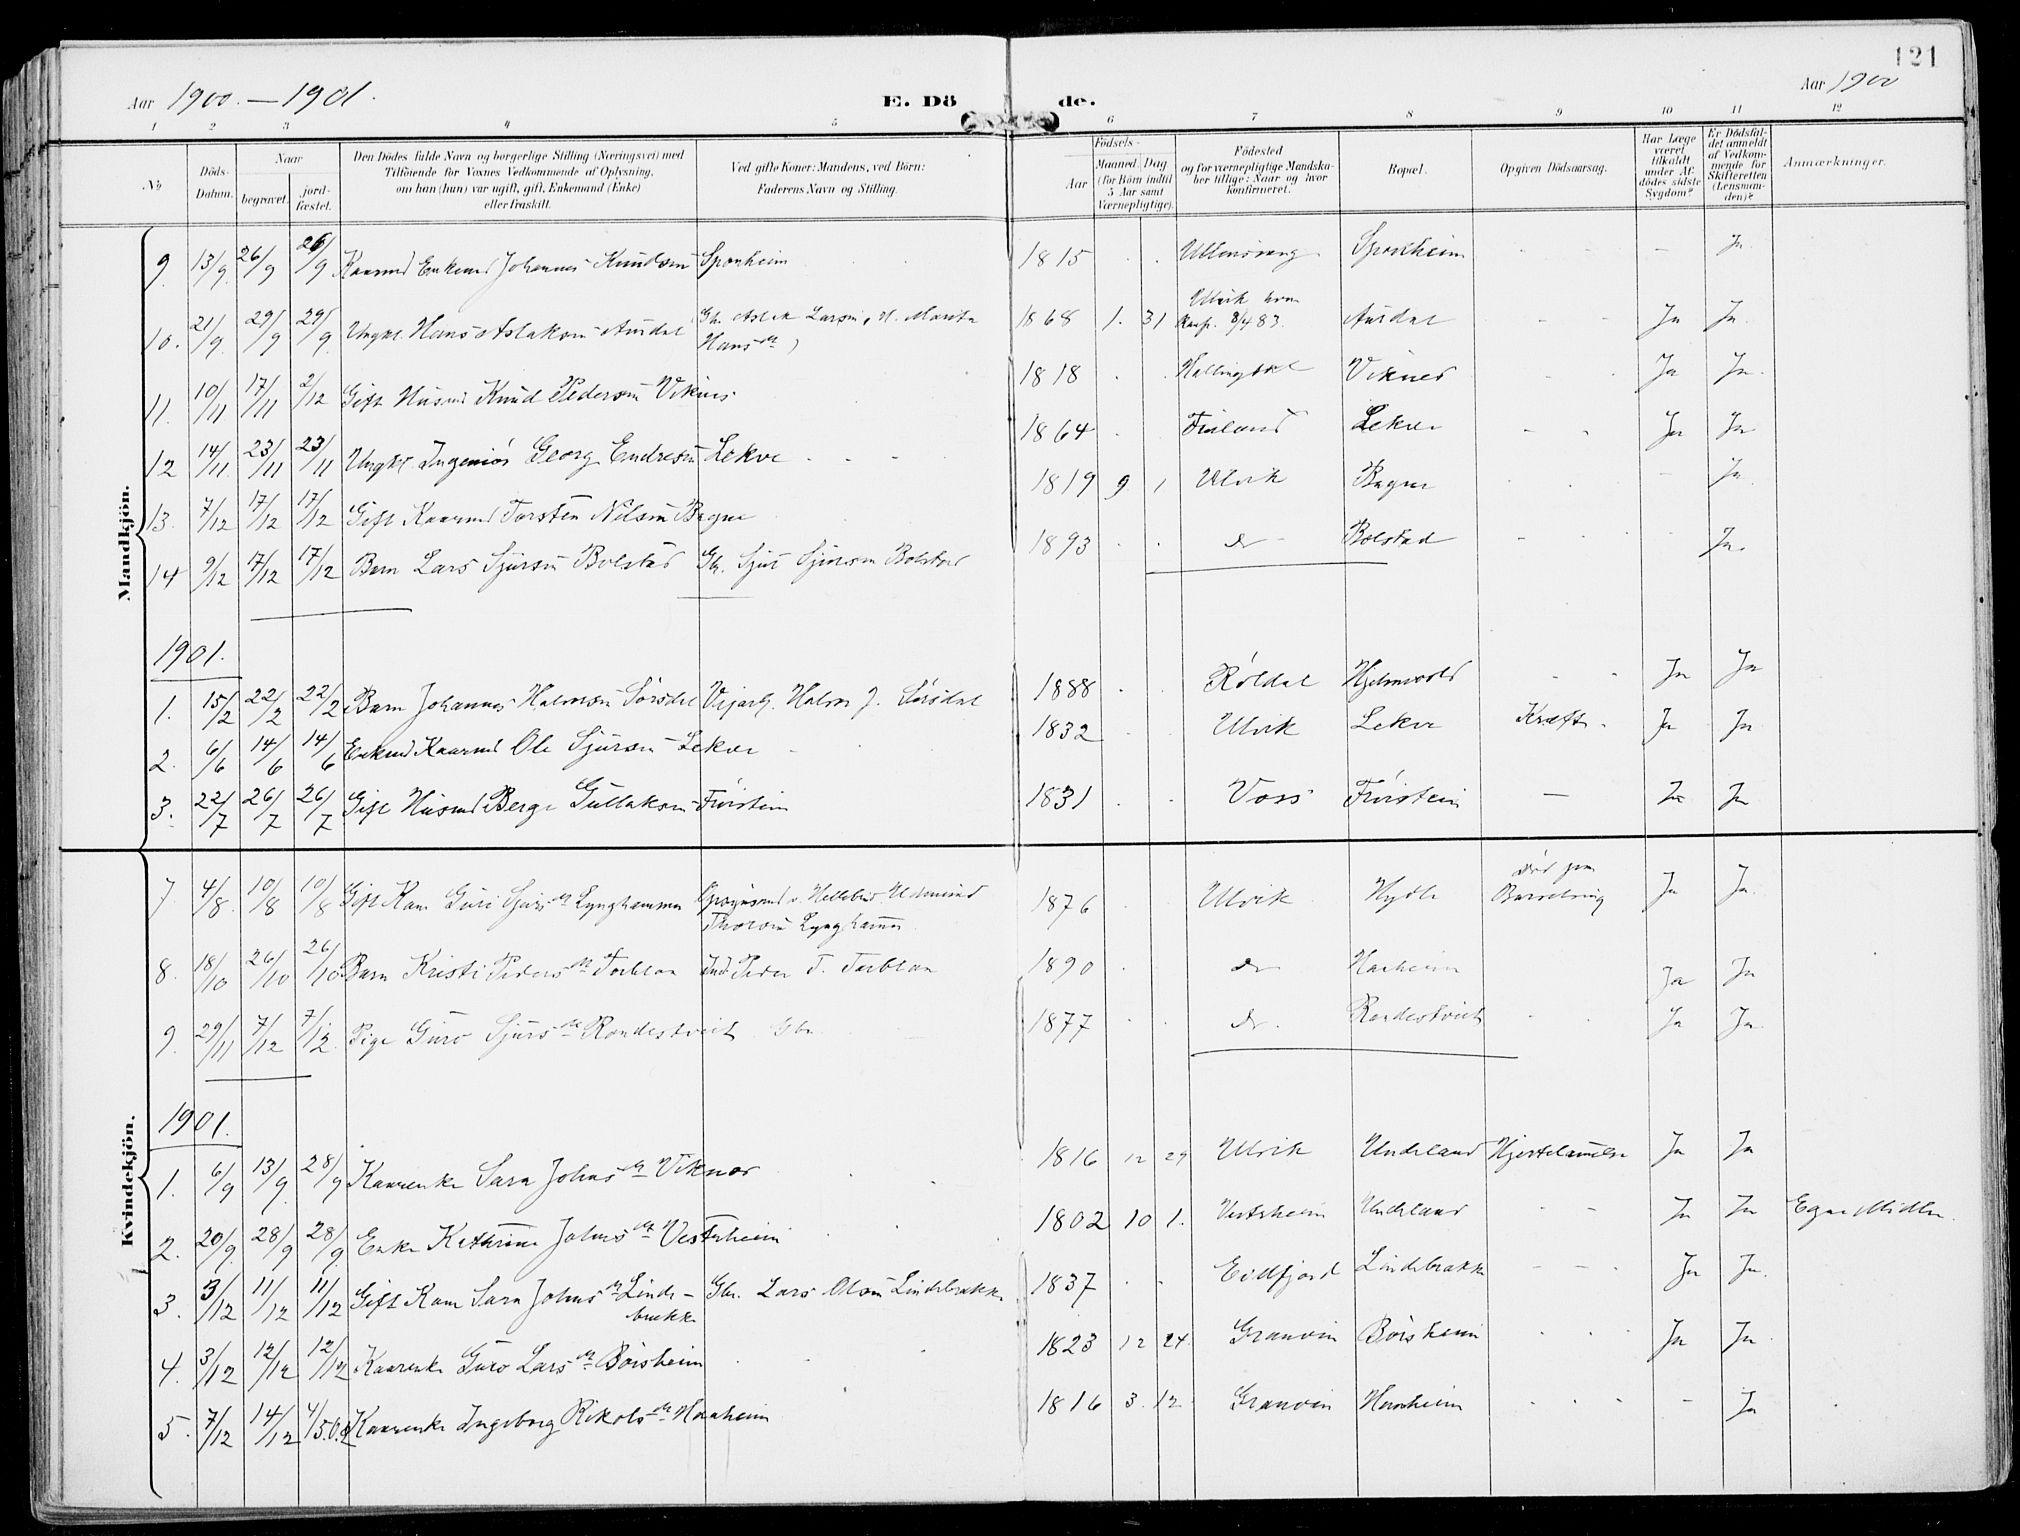 121
Aar 1900 — 1901.
E. Dö de.
Aar 1900
1 2 3 4 5 6 7 8 9 10 11 12
№
Döds-Datum.
Naar
begravet.
jord-fæstet.
Den Dödes fulde Navn og borgerlige Stilling (Næringsvei) med
Tilföiende for Voxnes Vedkommende af Oplysning,
om han (hun) var ugift, gift, Enkemand (Enke)
eller fraskilt.
Ved gifte Koner: Mandens, ved Börn:
Faderens Navn og Stilling.
Födsels-
Aar
Maaned Dag
(for Börn indtil
5 Aar samt
Værnepligtige).
Födested
og for værnepligtige Mandska-
ber tillige: Naar og hvor
konfirmeret.
Bopæl.
Opgiven Dödsaarsag.
Har Læge
været
tilkaldt
under Af-
dödes sidste
Sygdom?
Er Dödsfal-
det anmeldt
af Vedkom-
mende for
Skifteretten
(Lensman-
den)?
Anmærkninger.
Mandkjön.
9. 13/9 26/9 26/9 Kaarmd Enkemd Johannes Knudsen Sponheim 1815 Ullensvang Sponheim - - - Ja
10. 21/9 29/9 29/9 Ungkl. Hans Aslaksen Aurdal Gbr. Aslak Larsen, M. Marita 1868 1. 31 Ulvik hvor Aurdal - - Ja Ja.
Hans dr. konf. 8/4 83.
11. 10/11 17/11 2/12 Gift Husmd Knud Pedersen Viknes 1818 Hallingdal Viknes Ja Ja.
12 14/11 23/11 23/11 Ungkl. Ingeniör Georg Endresen Lekve 1864 Lekve - - Ja Ja
13. 7/12 17/12 17/12 Gift Kaarmd Torsten Nilsen Bagne 1819 9 1 Ulvik Bagne - Ja.
14 9/12 17/12 17/12 Barn Lars Sjursen Bolstad Gbr. Sjur Sjursen Bolstad 1893 do Bolstad Ja.
1901.
1. 15/2 22/2 22/2 Barn Johannes Halvorsen Sörsdal Halvor J. Sörsdal 1888 Röldal Hjelmvold - - Ja Ja
2. 6/6 14/6 14/6 Enkmd Kaarmd Ole Sjursen Lekve 1832 Ulvik Lekve Kræft. Ja Ja
3. 22/7 26/7 26/7 Gift Husmd Berge Gullaksen Fröistein 1831 Voss Fröistein — Ja Ja
Kvindekjön.
7 4/8 10/8 10/8 Gift Kone Guri Sjursdr Lynghammer 1876 Ulvik Hydle Död paa Ja Ja.
Thorsen Lynghammer Barselseng
8. 18/10 26/10 26/10 Barn Kristi Pedersdr Torblaa Ind. Peder T. Torblaa 1890 do Haaheim Ja Ja
9. 29/11 7/12 7/12 Pige Guro Sjursdr Rondestveit Gbr. 1877 do. Rondestveit Ja Ja.
1901.
1. 6/9 13/9 28/9 Kaarenke Sara Johnsdr Viknes 1816 12 29 Ulvik Undeland Hjertelammelse Ja Ja
2. 20/9 28/9 28/9 Enke Kathrine Johnsdr Vestrheim 1802 10 1. Vestrheim Undeland - - Ja Ja Egne Midler.
3. 3/12 11/12 11/12 Gift Kone Sara Johnsdr Linde- Gbr. Lars Olsen Lindebrække 1837 Eidfjord Lindebrække - - - Ja Ja.
brække
4. 3/12 12/12 12/12 Kaarenke Guro Larsdr Börsheim 1823 12 24. Granvin Börsheim Ja Ja.
5. 7/12 14/12 4/5.02 Kaarenke Ingeborg Rikolsdr Haaheim 1816 3. 12. Granvin Haaheim - Ja